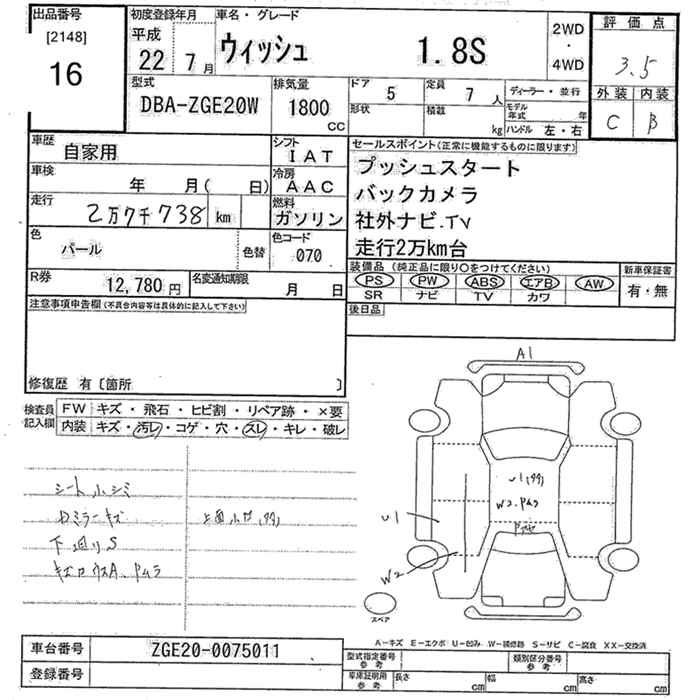 出品番号
[2148]
16
初度登録年月
平成
22 年 7月
車名・グレード
ウィッシュ 1.8S
2WD
・
4WD
評価点
3.5
外装 内装
C B
型式
DBA-ZGE20W
排気量
1800
CC
ドア 5
形状
定員 7 人
積載 kg
ディーラー・並行
モデル年式 年
ハンドル 左・右
車歴 自家用
シフト IAT
車検 年 月( 日)
冷房 AAC
走行 2万7千738 km
燃料 ガソリン
色 パール 色替
色コード 070
R券 12,780 円
名変通知期限 月 日
セールスポイント(正常に機能するものに限ります)
プッシュスタート
バックカメラ
社外ナビ.TV
走行2万km台
装備品(純正品に限り〇をつけてください)
PS PW ABS エアB AW
SR ナビ TV カワ
新車保証書
有・無
後日品
注意事項申告欄(不具合内容等は具体的に記入して下さい)
修復歴 有〔箇所 〕
検査員記入欄
FW キズ・飛石・ヒビ割・リペア跡・×要
内装 キズ・汚レ・コゲ・穴・スレ・キレ・破レ
シート小シミ
Dミラーキズ
下廻りS
A1
U1
W2
スペア
A-キズ E-エクボ U-凹み W-補修跡 S-サビ C-腐食 XX-交換済
車台番号 ZGE20-0075011
登録番号
型式指定番号 参考
類別区分番号 参考
車庫証明用 参考
長さ cm
幅 cm
高さ cm